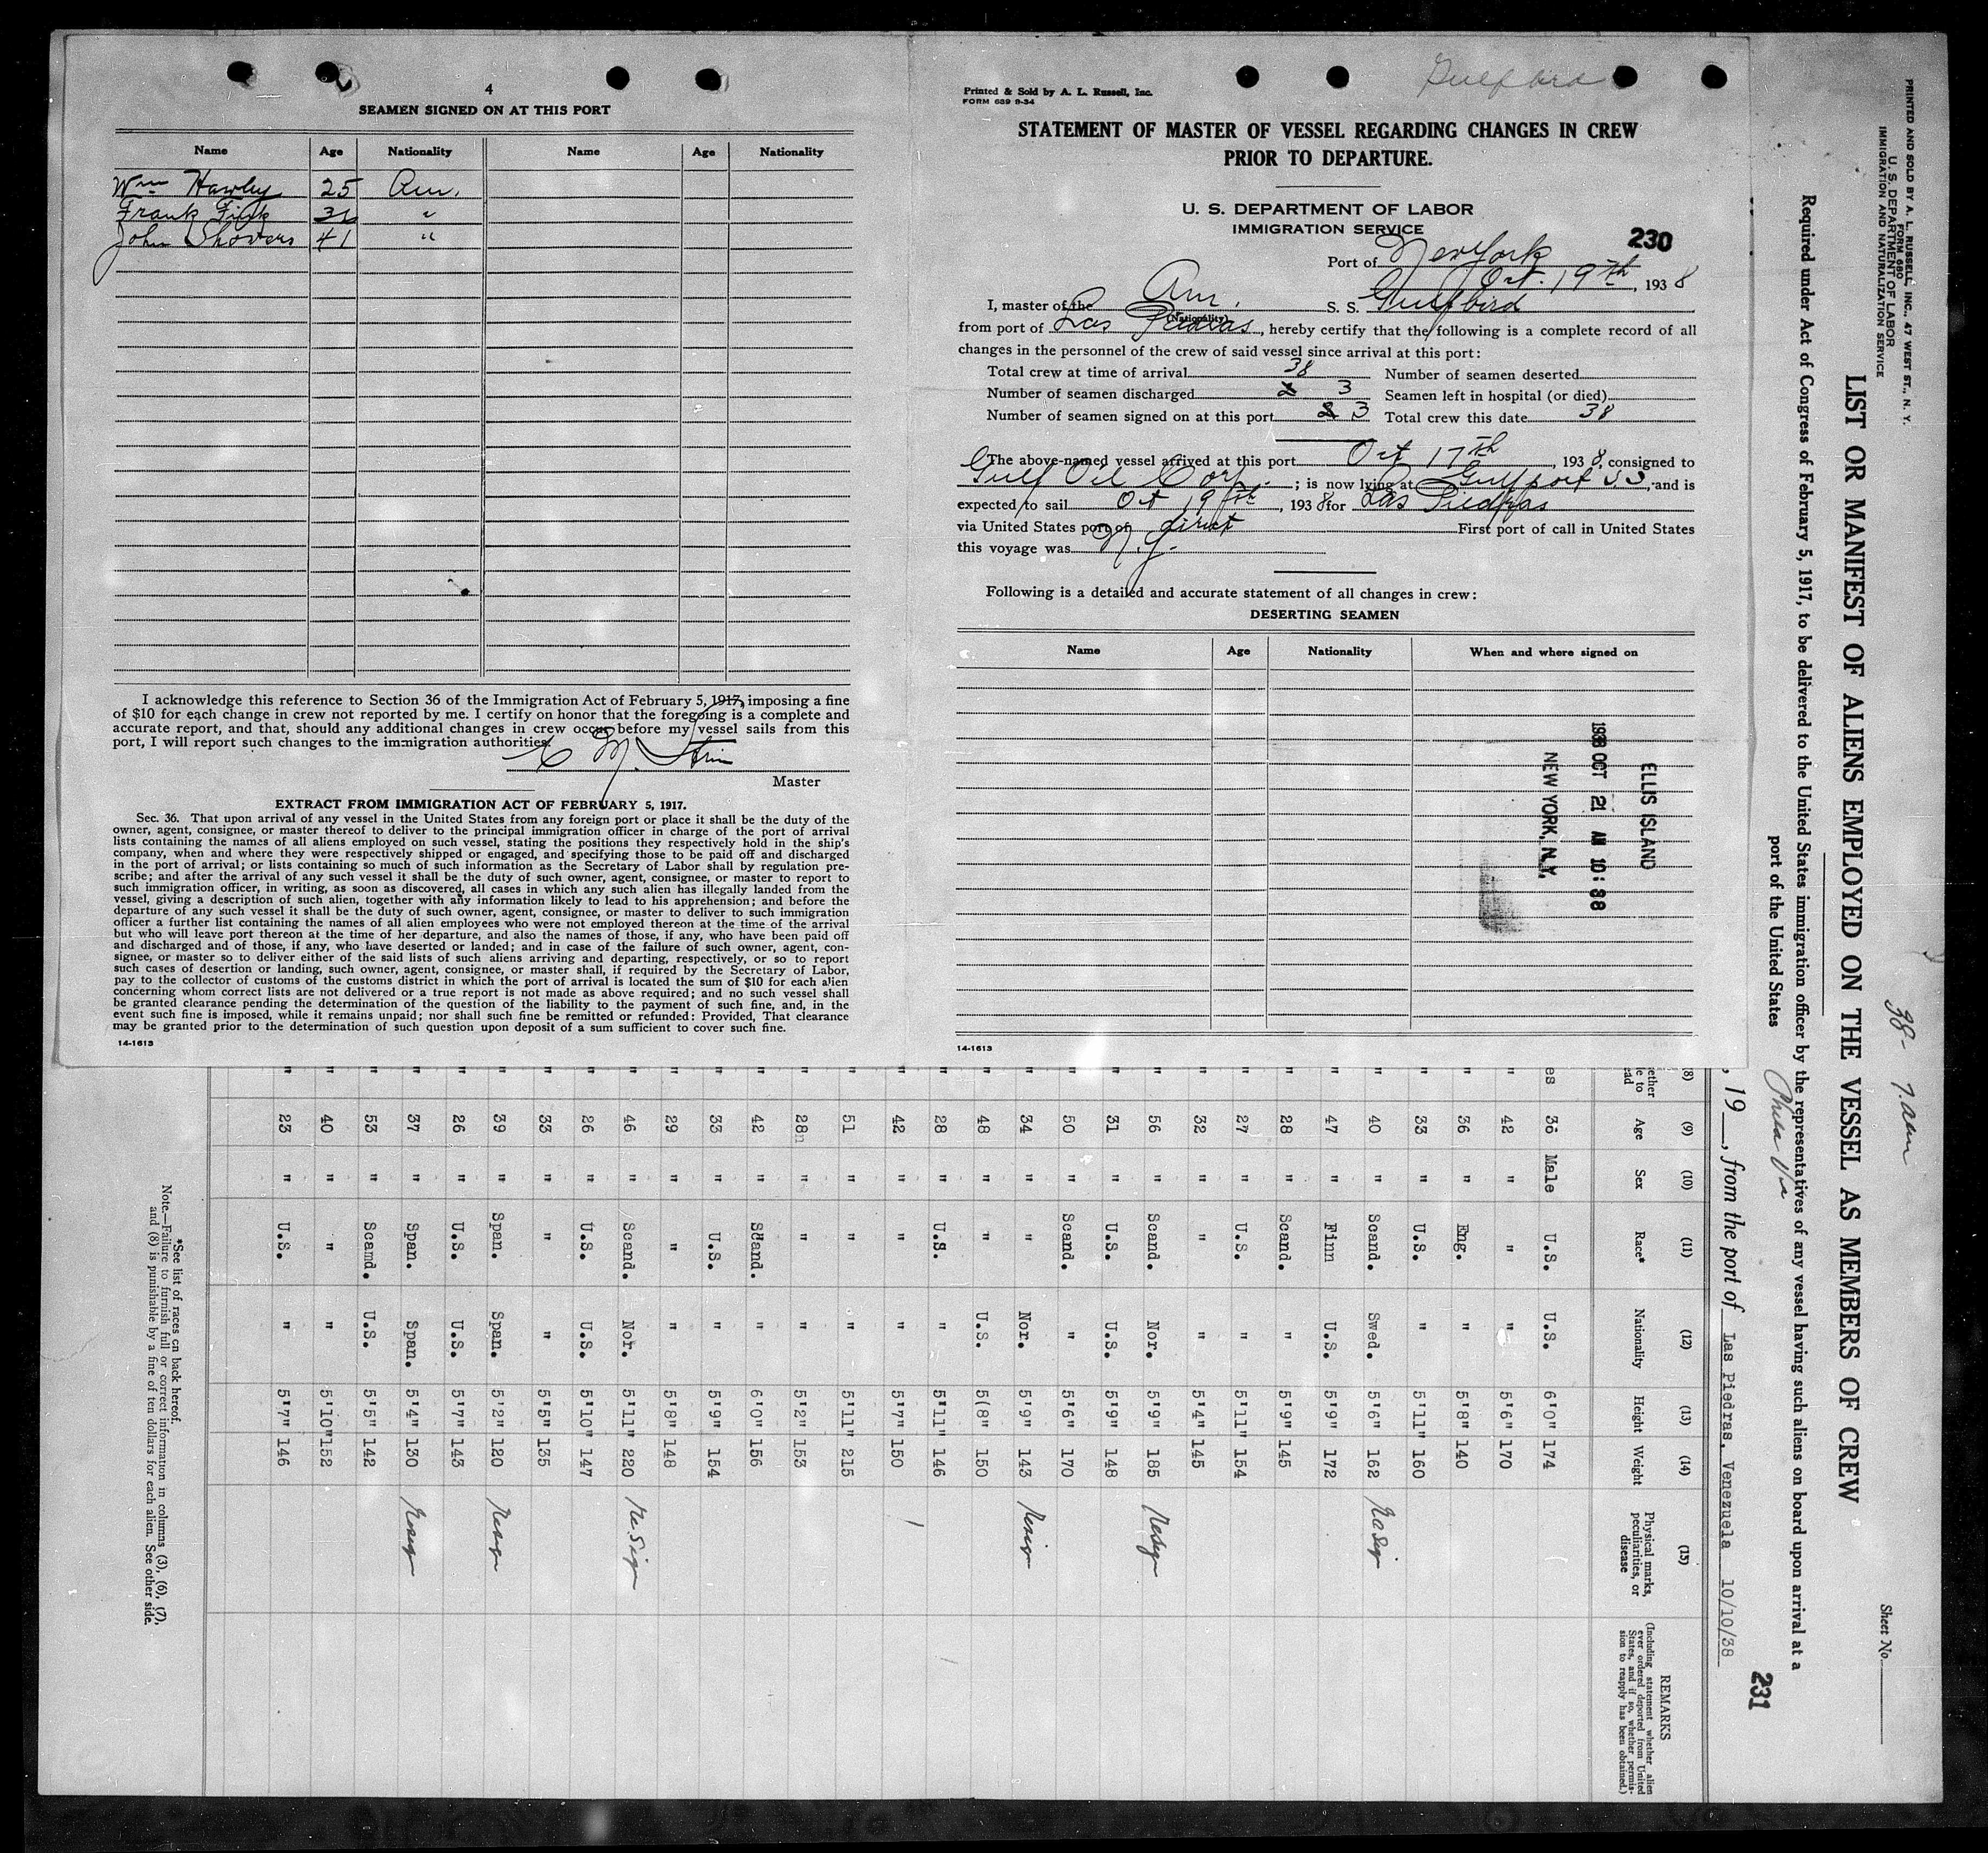 4
SEAMEN SIGNED ON AT THIS PORT
Name Age Nationality Name Age Nationality
Wm Hawley 25 Am.
Frank Fink "
John Shovers 41 "
I acknowledge this reference to Section 36 of the Immigration Act of February 5, 1917, imposing a fine
of $10 for each change in crew not reported by me. I certify on honor that the foregoing is a complete and
accurate report, and that, should any additional changes in crew occur before my vessel sails from this
port, I will report such changes to the immigration authorities.
C M.
Master
EXTRACT FROM IMMIGRATION ACT OF FEBRUARY 5, 1917.
Sec. 36. That upon arrival of any vessel in the United States from any foreign port or place it shall be the duty of the
owner, agent, consignee, or master thereof to deliver to the principal immigration officer in charge of the port of arrival
lists containing the names of all aliens employed on such vessel, stating the positions they respectively hold in the ship's
company, when and where they were respectively shipped or engaged, and specifying those to be paid off and discharged
in the port of arrival; or lists containing so much of such information as the Secretary of Labor shall by regulation pre-
scribe; and after the arrival of any such vessel it shall be the duty of such owner, agent, consignee, or master to report to
such immigration officer, in writing, as soon as discovered, all cases in which any such alien has illegally landed from the
vessel, giving a description of such alien, together with any information likely to lead to his apprehension; and before the
departure of any such vessel it shall be the duty of such owner, agent, consignee, or master to deliver to such immigration
officer a further list containing the names of all alien employees who were not employed thereon at the time of the arrival
but who will leave port thereon at the time of her departure, and also the names of those, if any, who have been paid off
and discharged and of those, if any, who have deserted or landed; and in case of the failure of such owner, agent, con-
signee, or master so to deliver either of the said lists of such aliens arriving and departing, respectively, or so to report
such cases of desertion or landing, such owner, agent, consignee, or master shall, if required by the Secretary of Labor,
pay to the collector of customs of the customs district in which the port of arrival is located the sum of $10 for each alien
concerning whom correct lists are not delivered or a true report is not made as above required; and no such vessel shall
be granted clearance pending the determination of the question of the liability to the payment of such fine, and, in the
event such fine is imposed, while it remains unpaid; nor shall such fine be remitted or refunded: Provided, That clearance
may be granted prior to the determination of such question upon deposit of a sum sufficient to cover such fine.
14-1613
Gulfbird
Printed & Sold by A. L. Russell, Inc.
FORM 689 9-34
STATEMENT OF MASTER OF VESSEL REGARDING CHANGES IN CREW
PRIOR TO DEPARTURE.
U. S. DEPARTMENT OF LABOR
IMMIGRATION SERVICE
230
Port of New York
Oct. 19th, 1938
I, master of the Am. S. S. Gulfbird
(Nationality)
from port of Las Piedras, hereby certify that the following is a complete record of all
changes in the personnel of the crew of said vessel since arrival at this port:
Total crew at time of arrival 38 Number of seamen deserted
Number of seamen discharged 2 3 Seamen left in hospital (or died)
Number of seamen signed on at this port 2 3 Total crew this date 38
The above-named vessel arrived at this port Oct 17th, 1938, consigned to
Gulf Oil Corp.; is now lying at Gulfport S.I., and is
expected to sail Oct 19th, 1938 for Las Piedras
via United States port of direct First port of call in United States
this voyage was N.Y.
Following is a detailed and accurate statement of all changes in crew:
DESERTING SEAMEN
Name Age Nationality When and where signed on
ELLIS ISLAND
1938 OCT 21 AM 10:38
NEW YORK, N.Y.
14-1613
PRINTED AND SOLD BY A. L. RUSSELL, INC., 47 WEST ST., N. Y.
FORM 680
U. S. DEPARTMENT OF LABOR
IMMIGRATION AND NATURALIZATION SERVICE
38-
Sheet No.
LIST OR MANIFEST OF ALIENS EMPLOYED ON THE VESSEL AS MEMBERS OF CREW
Required under Act of Congress of February 5, 1917, to be delivered to the United States immigration officer by the representatives of any vessel having such aliens on board upon arrival at a
port of the United States
231
, 19 , from the port of Las Piedras, Venezuela 10/10/38
(8) (9) (10) (11) (12) (13) (14) (15)
Age Sex Race* Nationality Height Weight Physical marks, peculiarities, or disease
REMARKS
(Including statement whether alien
ever ordered deported from United
States, and if so, whether permis-
sion to reapply has been obtained.)
es 36 Male U.S. U.S. 6'0" 174
" 42 " " " 5'6" 170
" 36 " Eng. " 5'8" 140
" 33 " U.S. " 5'11" 160
" 40 " Scand. Swed. 5'6" 162
" 47 " Finn U.S. 5'9" 172
" 28 " Scand. " 5'9" 145
" 27 " U.S. " 5'11" 154
" 32 " " " 5'4" 145
" 56 " Scand. Nor. 5'9" 185
" 31 " U.S. U.S. 5'9" 148
" 50 " Scand. " 5'6" 170
" 34 " " Nor. 5'9" 143
" 48 " " U.S. 5(8" 150
" 28 " U.S. " 5'11" 146
" 42 " " " 5'7" 150
" 51 " " " 5'11" 215
" 28 " " " 5'2" 153
" 42 " Scand. " 6'0" 156
" 33 " U.S. " 5'9" 154
" 29 " " " 5'8" 148
" 46 " Scand. Nor. 5'11" 220
" 26 " U.S. U.S. 5'10" 147
" 33 " " " 5'5" 135
" 39 " Span. Span. 5'2" 120
" 26 " U.S. U.S. 5'7" 143
" 37 " Span. Span. 5'4" 130
" 53 " Scamd. U.S. 5'5" 142
" 40 " " " 5'10" 152
" 23 " U.S. " 5'7" 146
*See list of races on back hereof.
Note.—Failure to furnish full or correct information in columns (3), (6), (7),
and (8) is punishable by a fine of ten dollars for each alien. See other side.